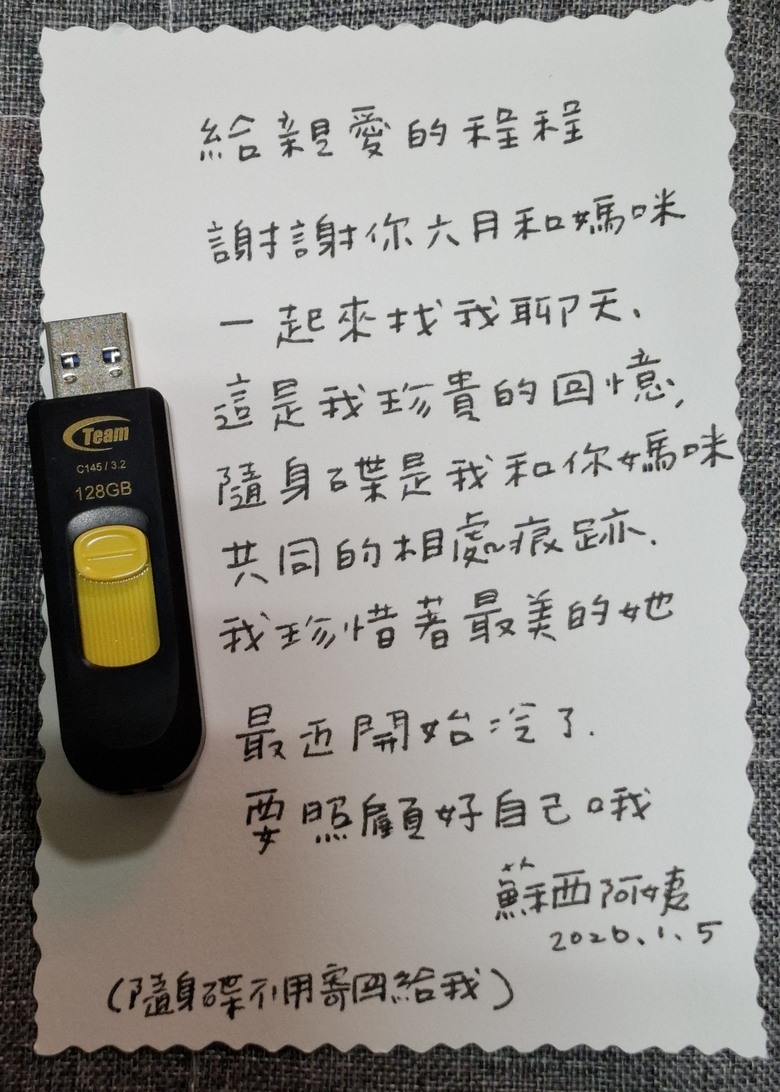 給親愛的程程
謝謝你六月和媽咪
一起來找我聊天、
這是我珍貴的回憶,
隨身碟是我和你媽咪
共同的相處痕跡.
我珍惜著最美的她
最近開始冷了.
要照顧好自己哦
蘇西阿姨
2026.1.5
(隨身碟不用寄回給我)
Team
C145 / 3.2
128GB